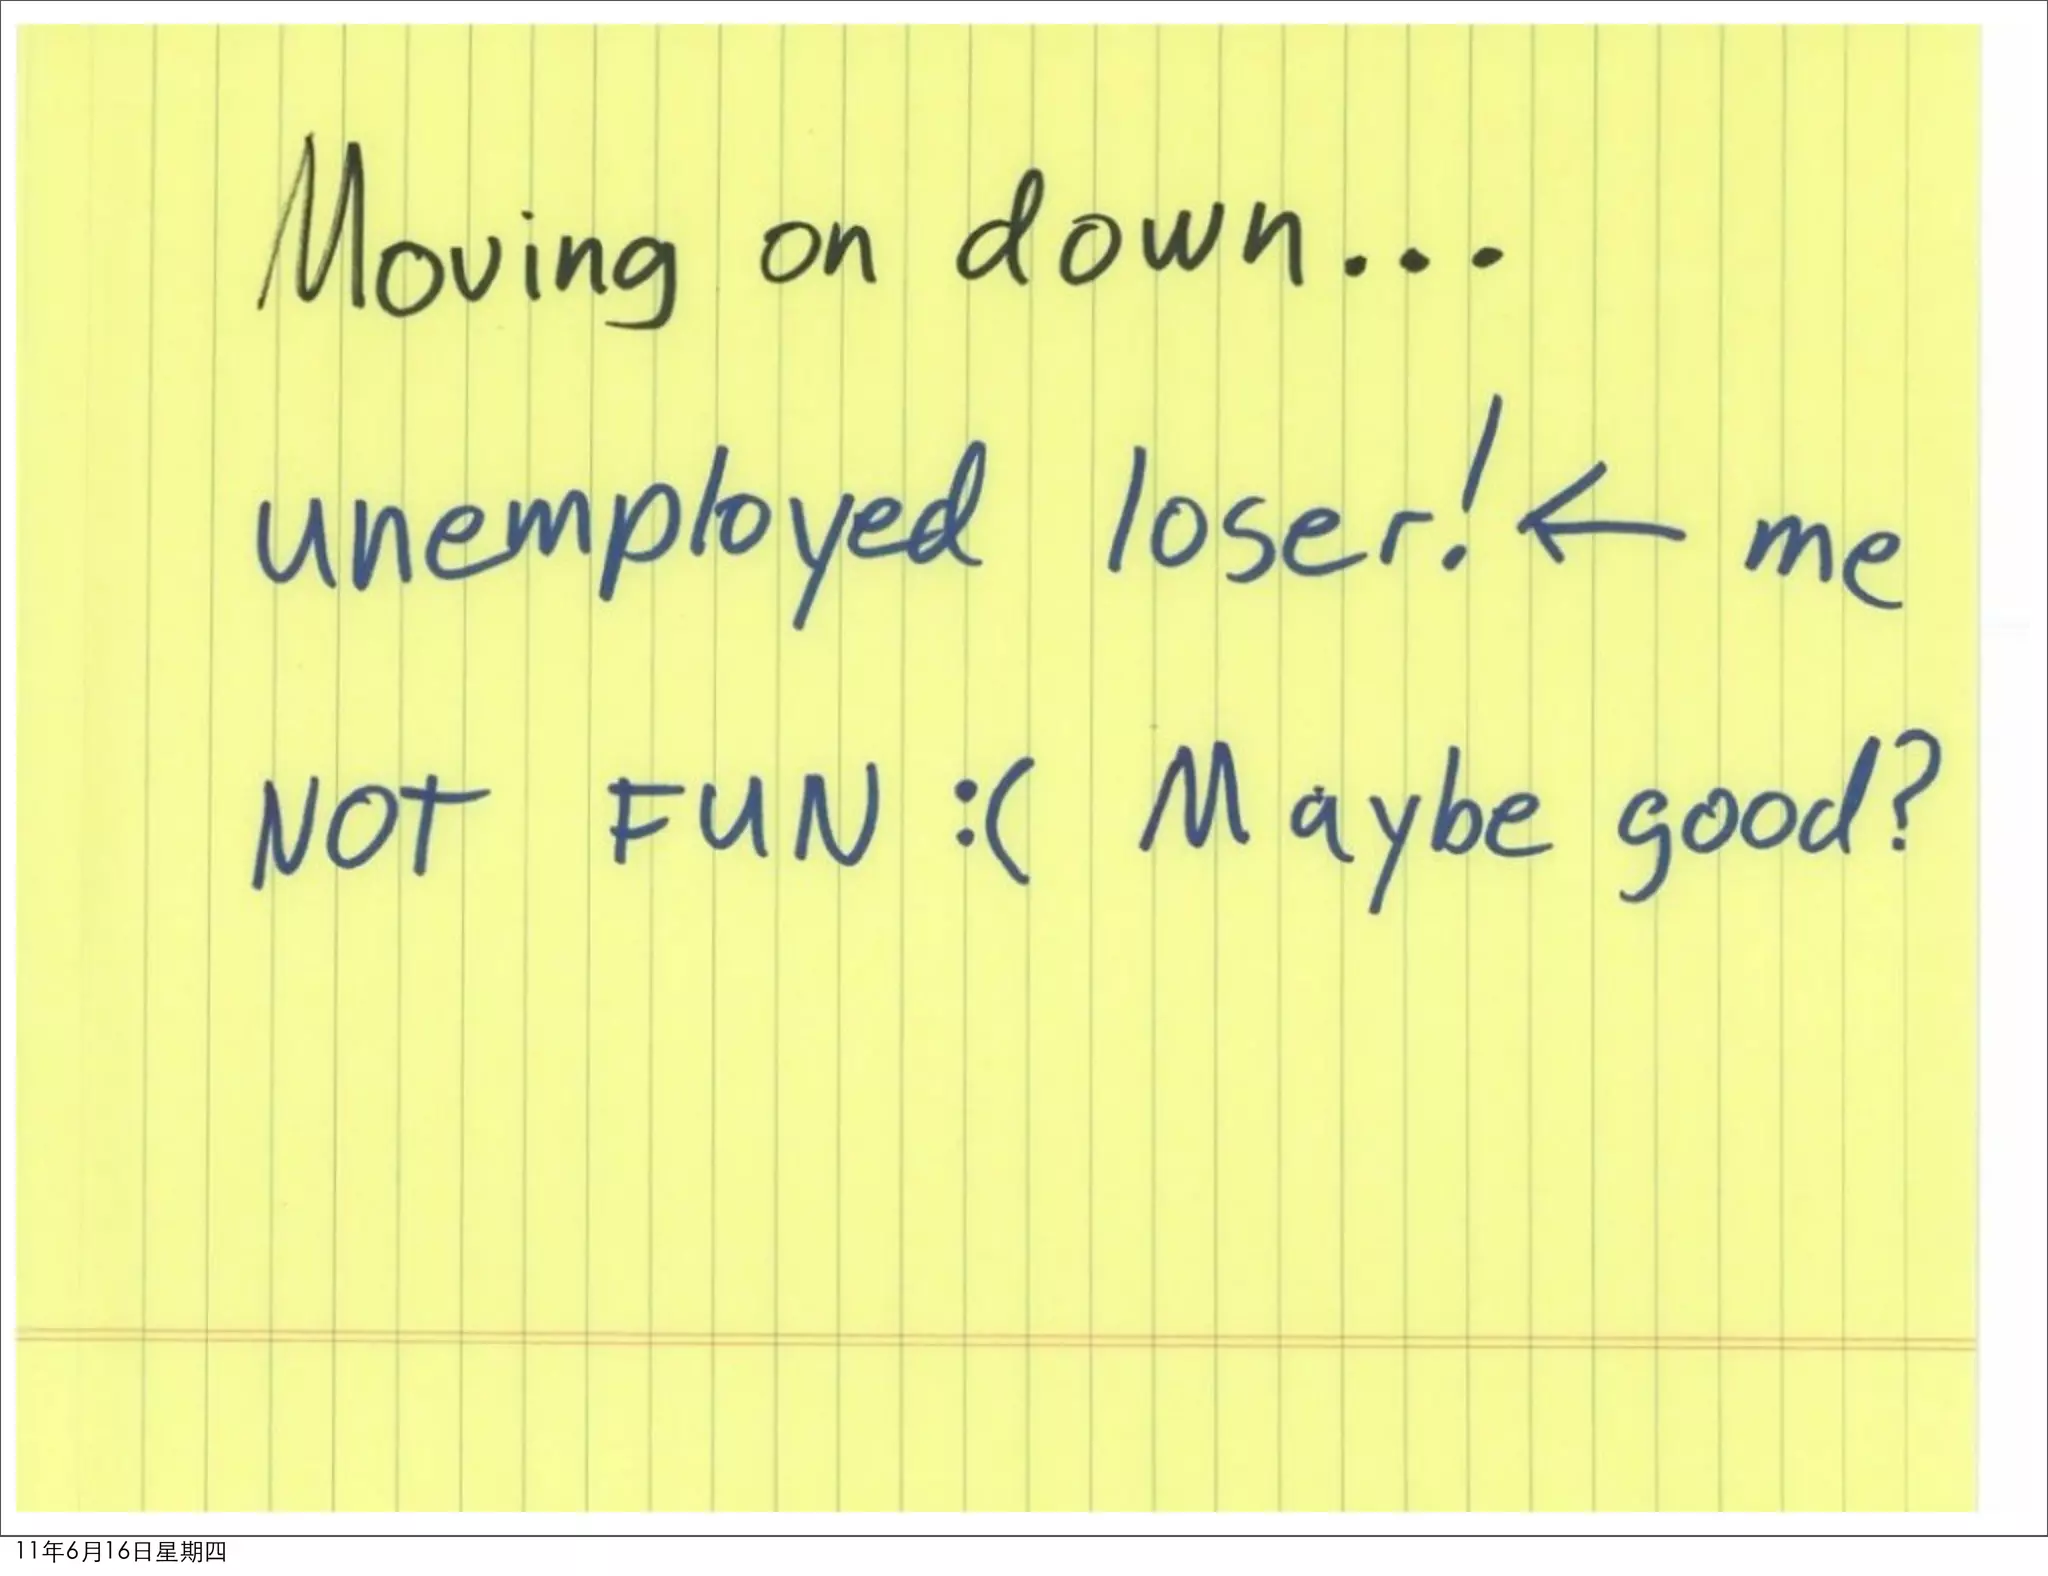 Moving on down...
unemployed loser! ← me
NOT FUN :( Maybe good?
11年6月16日星期四